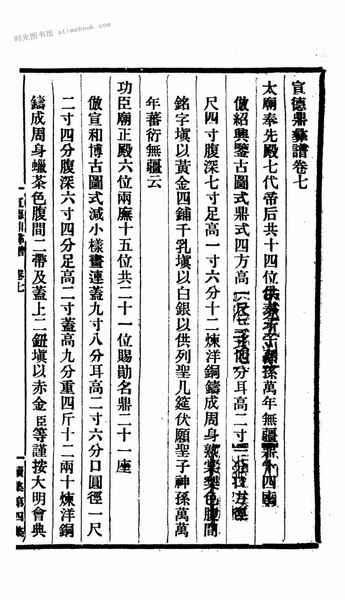 时光图书馆 atimebook.com
宣德鼎彝譜卷七
太廟奉先殿七代帝后共十四位供奉 孫萬年無疆鼎十四座
倣紹興鑒古圖式鼎式四方高 分耳高二寸 方徑
尺四寸腹深七寸足高一寸六分十二煉洋銅鑄成周身 色腹間
銘字塡以黃金四鋪千乳塡以白銀以供列聖几筵伏願聖子神孫萬萬
年蕃衍無疆云
功臣廟正殿六位兩廡十五位共二十一位賜勛名鼎二十一座
倣宣和博古圖式減小樣畫連蓋九寸八分耳高二寸六分口圓徑一尺
二寸四分腹深六寸四分足高二寸蓋高九分重四斤十二兩十煉洋銅
鑄成周身蠟茶色腹間二帶及蓋上二鈕塡以赤金臣等謹按大明會典
卷七
第四集